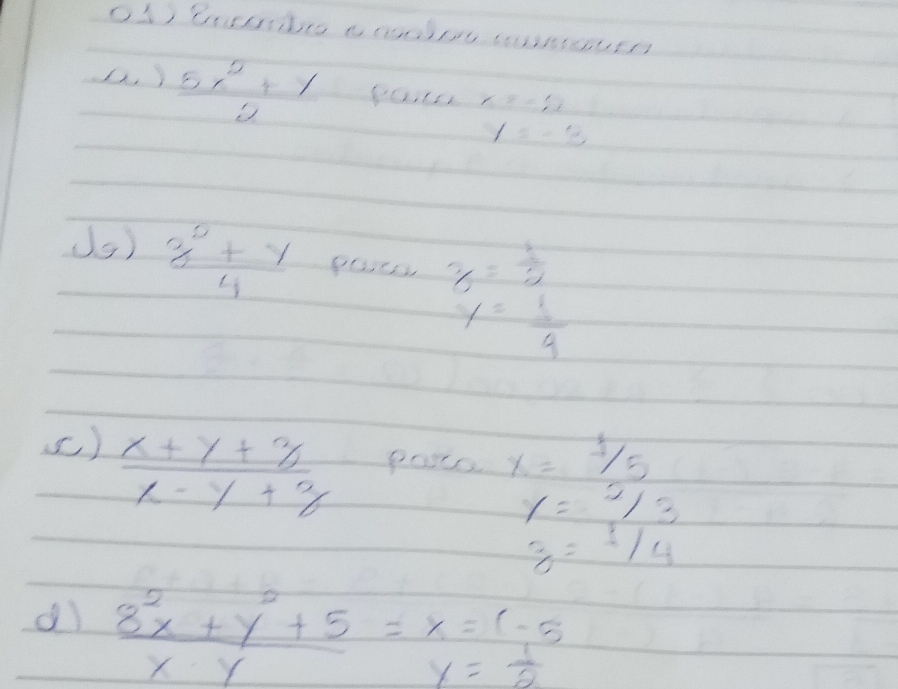 01) Encontre o valor numérico
a) (5x² + y)/2 para x = -2
y = -3
b) (z² + y)/4 para z = 1/2
y = 1/9
c) (x + y + z)/(x - y + z) para x = 1/5
y = 2/3
z = 1/4
d) (8²x + y² + 5)/(x · y) = x = (-5
y = 1/2